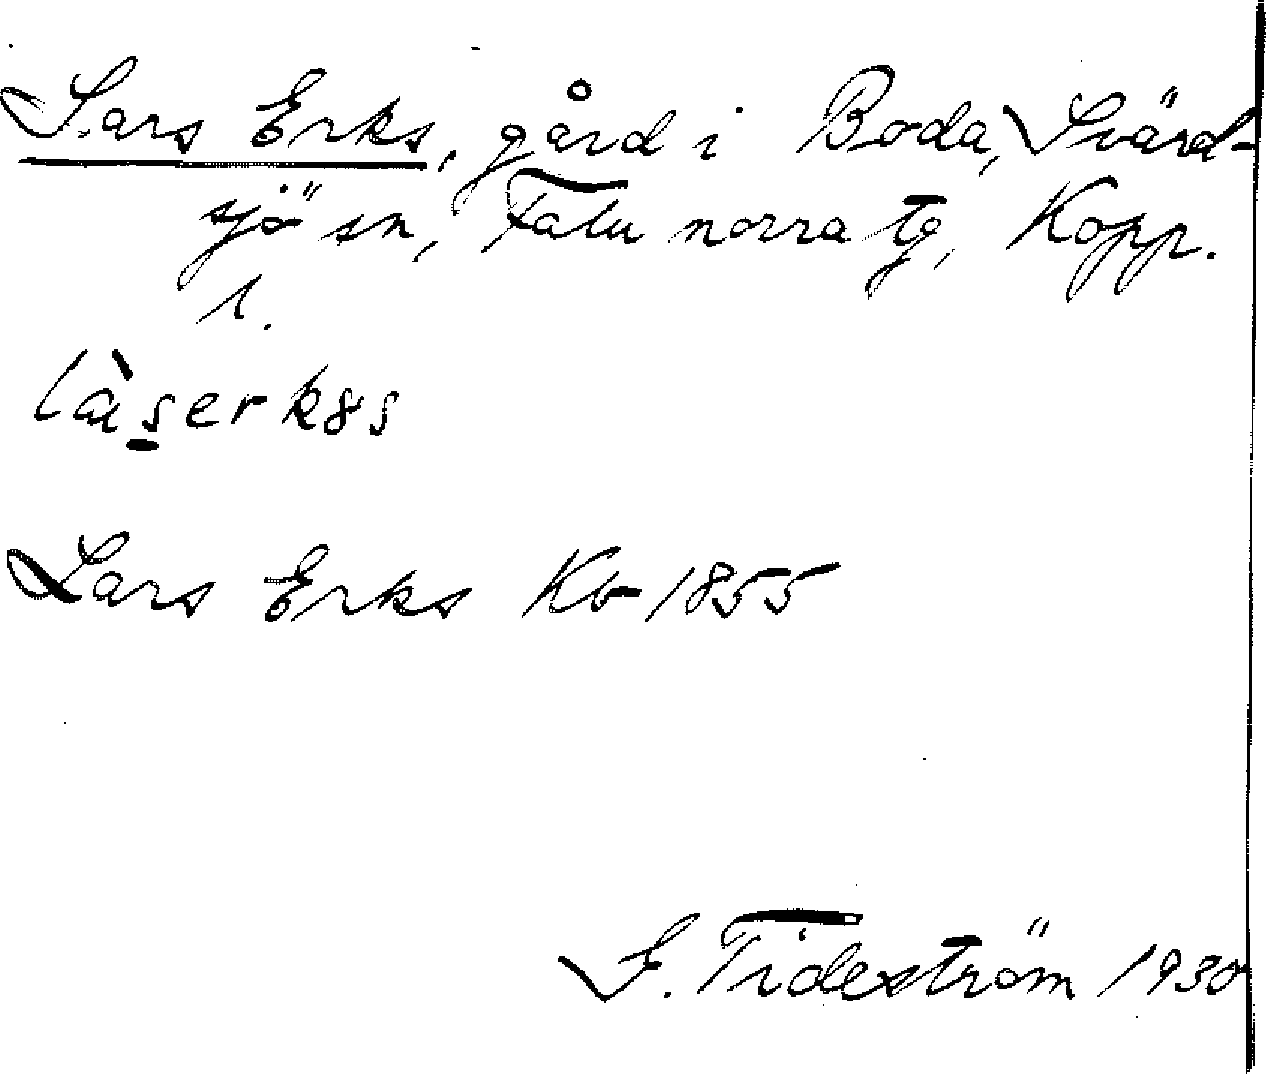 Lars Erks, gård i Boda, Svärd-
sjö sn, Falu norra tg, Kopp.
l.
là̱serk8s
Lars Erks Kb 1855
G. Tideström 1930